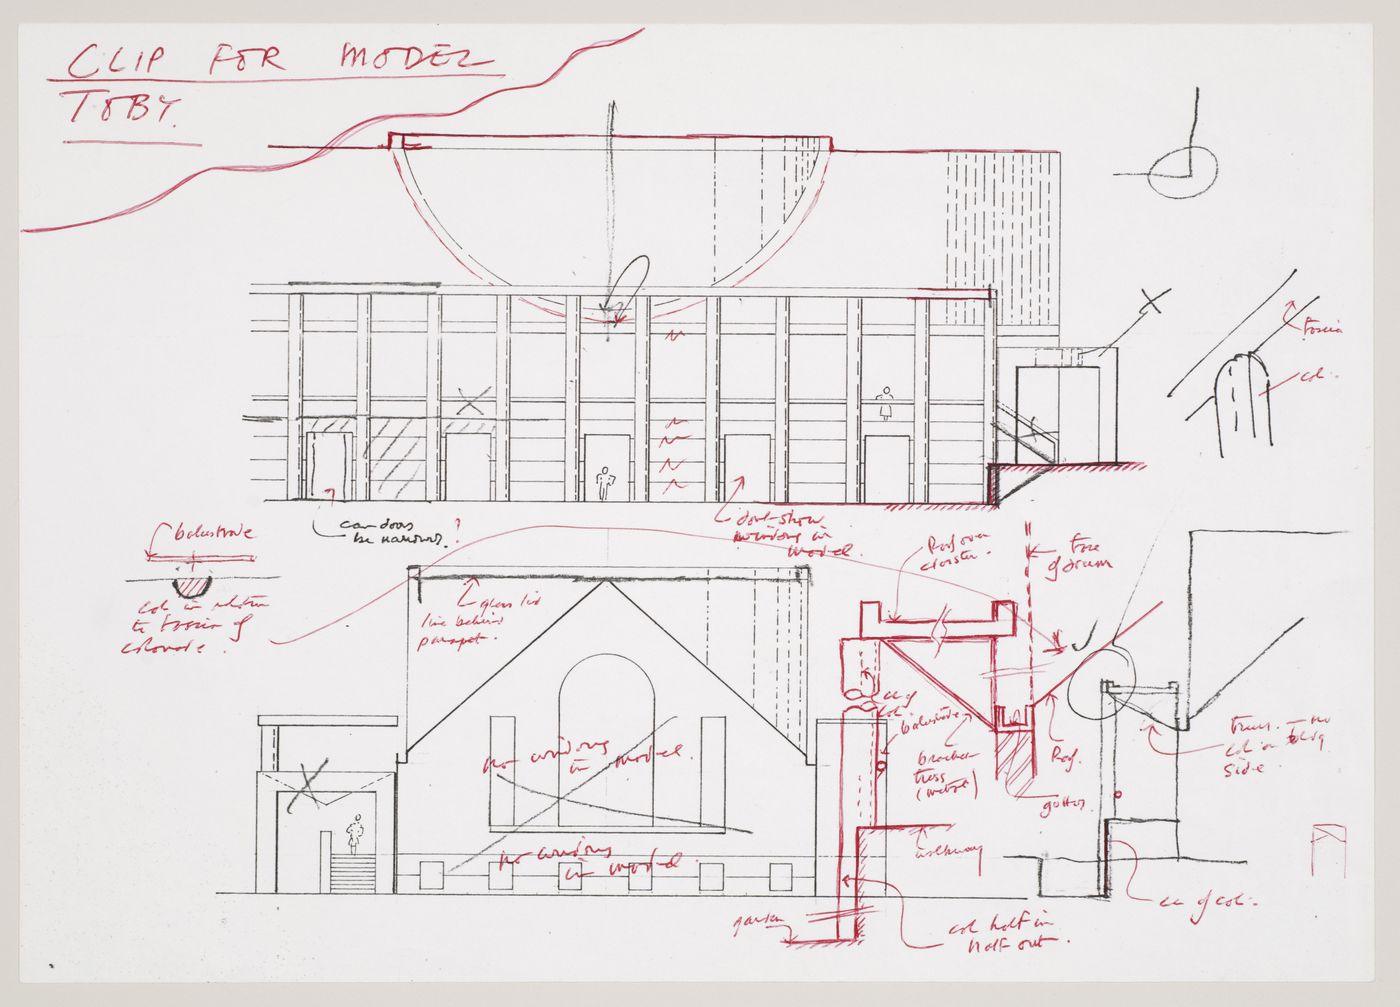 CLIP FOR MODEL
TOBY.
fascia
col.
balustrade
col in relation
to fascia of
colonnade.
can doors
be narrower?
dont show
windows in
model.
glass lid
line behind
parapet.
Roof over
cloister.
face
of drum
no windows
in model.
no windows
in model.
℄ of
col.
balustrade
bracket
truss
(metal)
Roof.
gutter.
walkway
garden
col half in
half out.
truss. — no
col on bldg
side.
℄ of col.